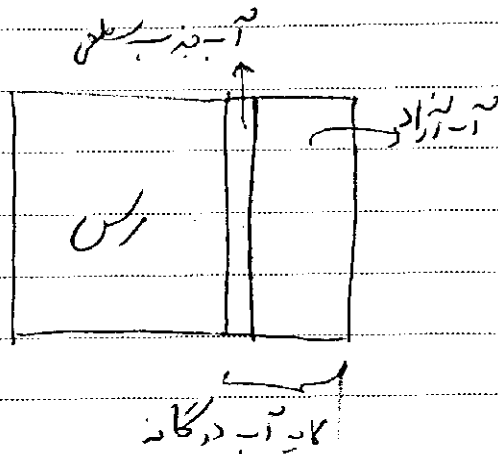 آب جذب سطحی
آب آزاد
رس
لایه آب دوگانه